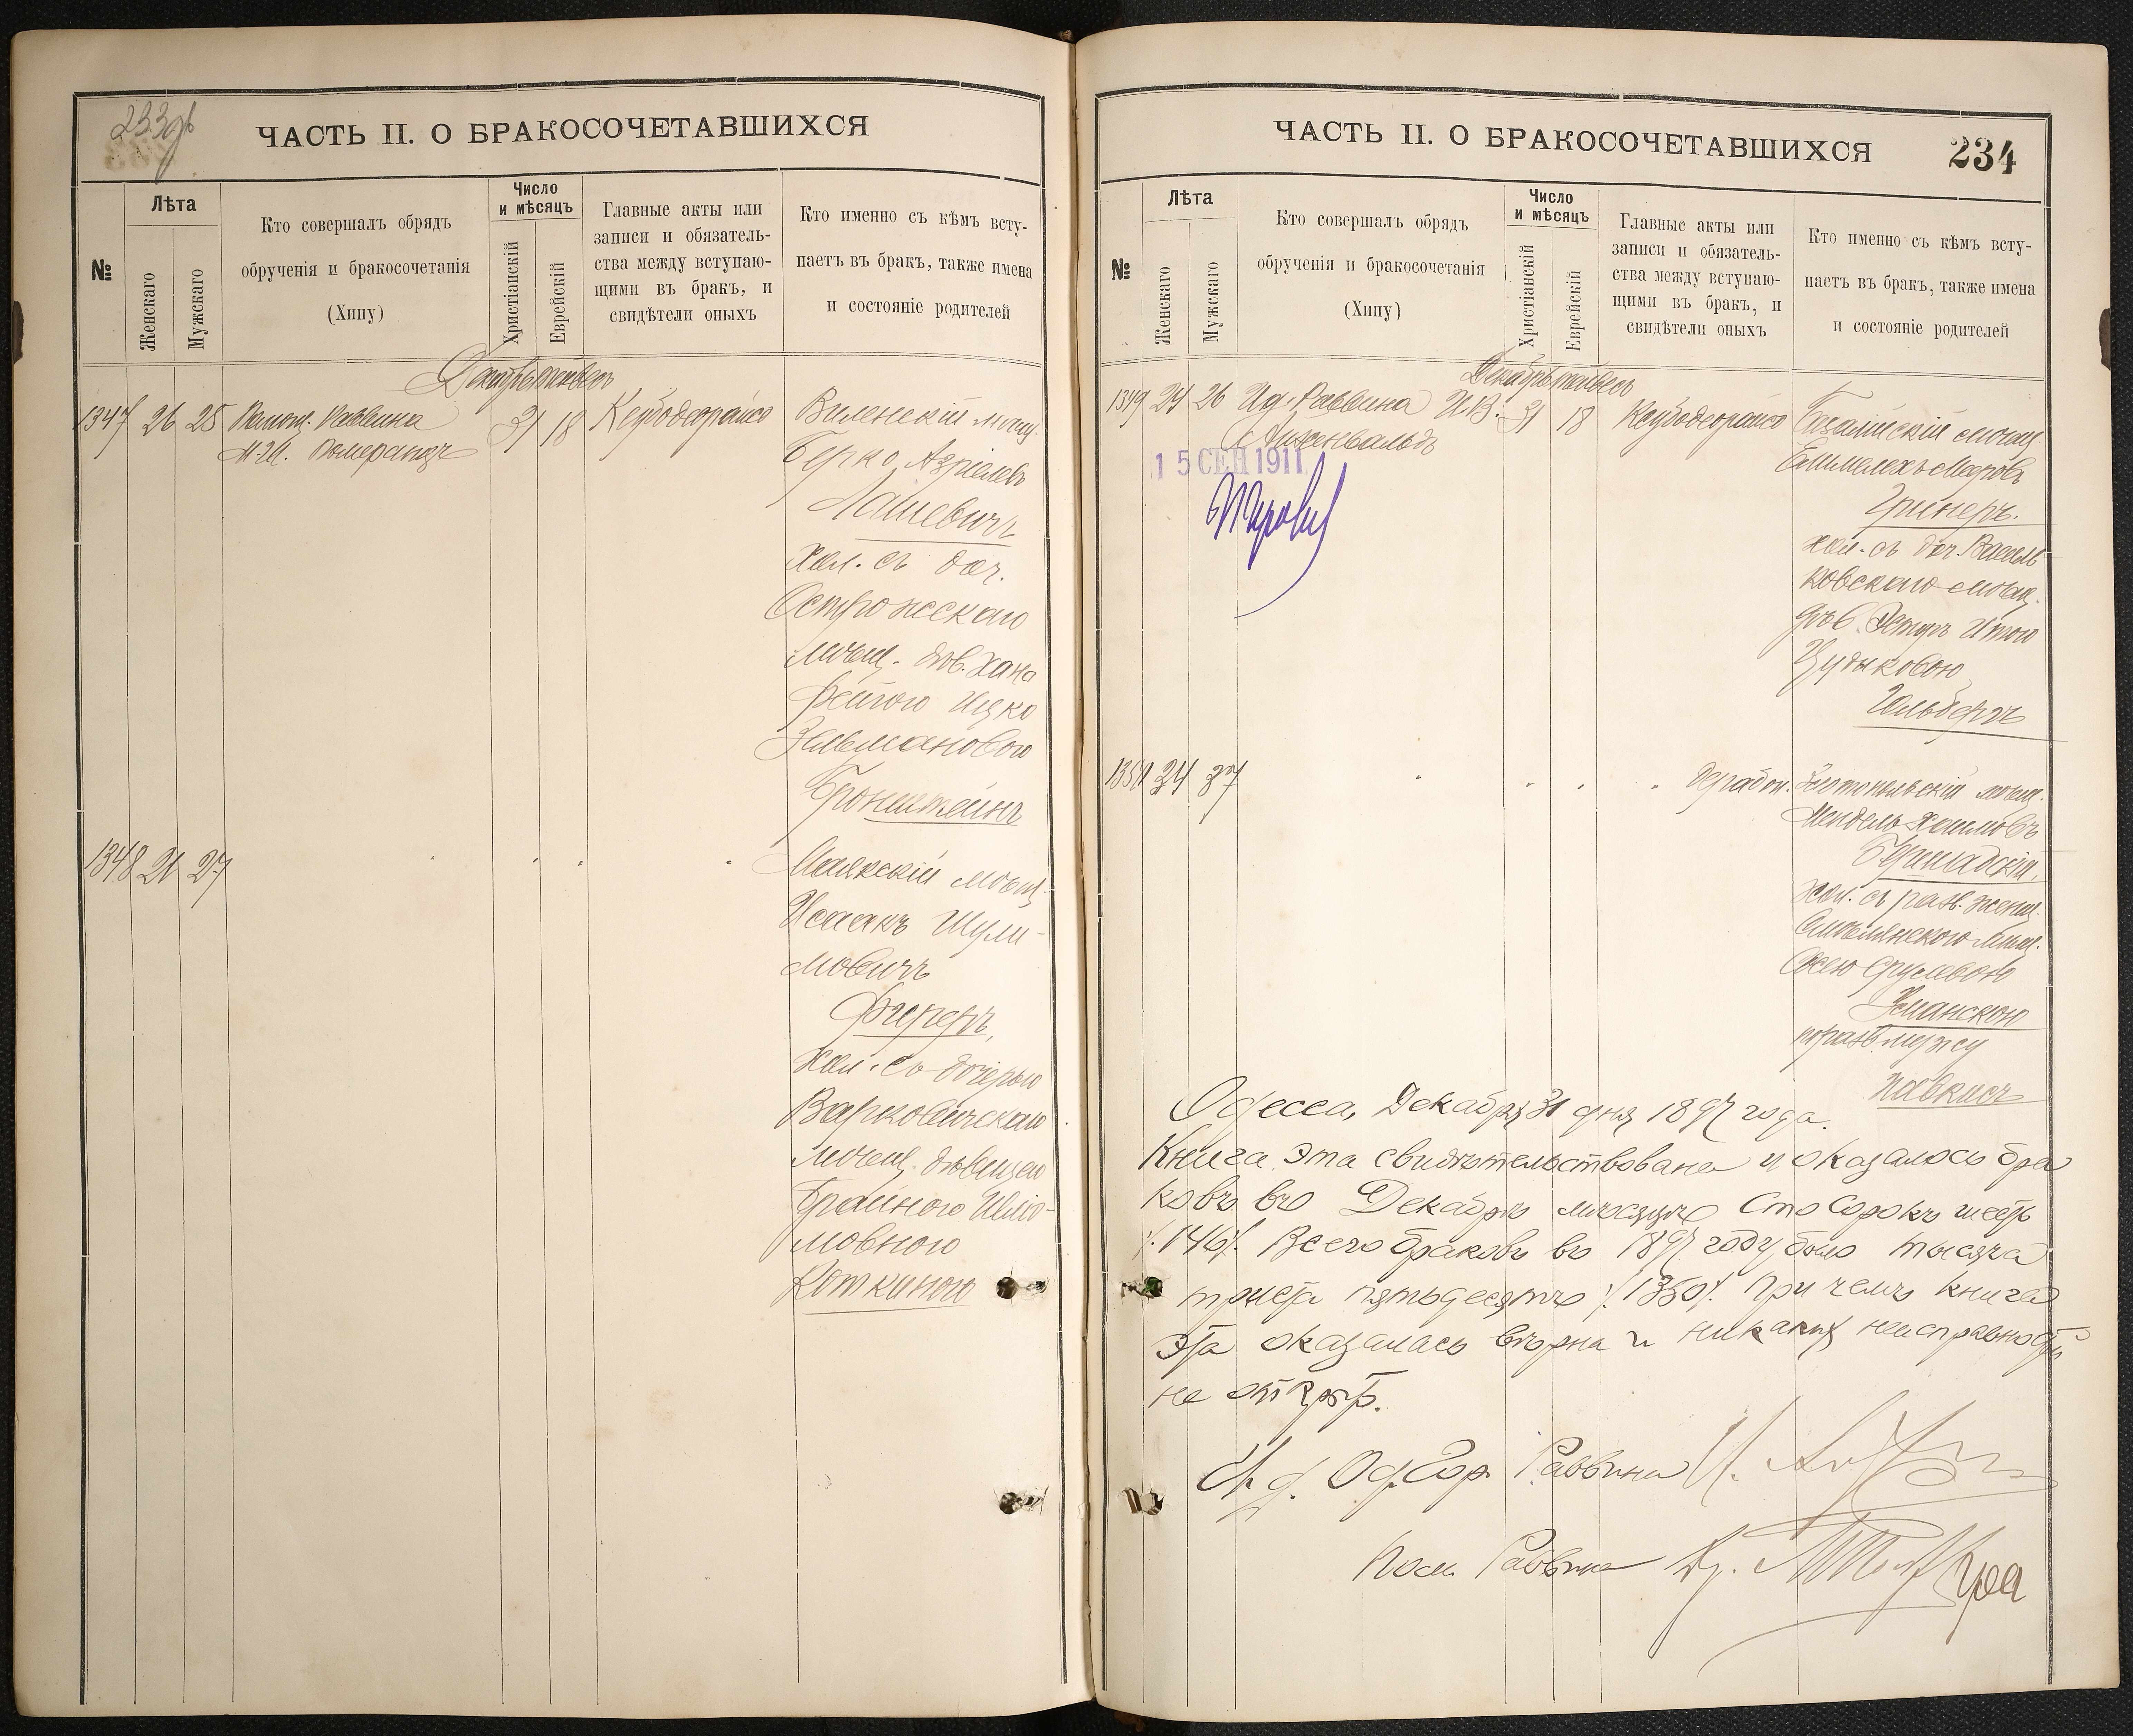 233об
ЧАСТЬ II. О БРАКОСОЧЕТАВШИХСЯ
№
Лѣта
Женскаго
Мужскаго
Кто совершалъ обрядъ
обрученія и бракосочетанія
(Хипу)
Число
и мѣсяцъ
Христіанскій
Еврейскій
Главные акты или
записи и обязатель-
ства между вступаю-
щими въ бракъ, и
свидѣтели оныхъ
Кто именно съ кѣмъ всту-
паетъ въ бракъ, также имена
и состояніе родителей
Декабрь
1347 26 28 Помощ. Раввина 31 18 Виленскій мѣщ.
М. И. Померанцъ
Берко Азріелевъ
Лашевичъ
хол. съ доч.
Острожскаго
мѣщ. дѣв. Хана
Фейгою Ицко
Зельмановою
Бронштейнъ
1348 21 27 Маякскій мѣщ.
Исаакъ Шули-
мовичъ
Фиреръ,
хол. съ дочерью
Варковичскаго
мѣщ. дѣвицею
Брайною Шлио-
мовною
Коткиною
ЧАСТЬ II. О БРАКОСОЧЕТАВШИХСЯ
234
№
Лѣта
Женскаго
Мужскаго
Кто совершалъ обрядъ
обрученія и бракосочетанія
(Хипу)
Число
и мѣсяцъ
Христіанскій
Еврейскій
Главные акты или
записи и обязатель-
ства между вступаю-
щими въ бракъ, и
свидѣтели оныхъ
Кто именно съ кѣмъ всту-
паетъ въ бракъ, также имена
и состояніе родителей
Декабрь
1349 24 26 Раввина 31 18 мѣщ.
15 СЕН 1911
Гринеръ.
хол. съ доч. Василь
ковскаго мѣщ.
дѣв. Итою
Цудыковою
Гильбергъ
1350 34 37 мѣщ.
Мендель Хаимовъ
Бершадскій,
хол. съ разв. женщ.
Срулевою
Уманскою
по разв. мужу
Одесса, Декабря 31 дня 1897 года.
Книга эта свидѣтельствована и оказалось бра
ковъ въ Декабрѣ мѣсяцѣ Сто Сорокъ шесть
/.146/. Всего браковъ въ 1897 году было тысяча
триста пятьдесятъ /.1350/. При чемъ книга
эта оказалась вѣрна и никакихъ неисправностей
не открыто.
И. д. Од. Гор. Раввина
Пом. Раввина